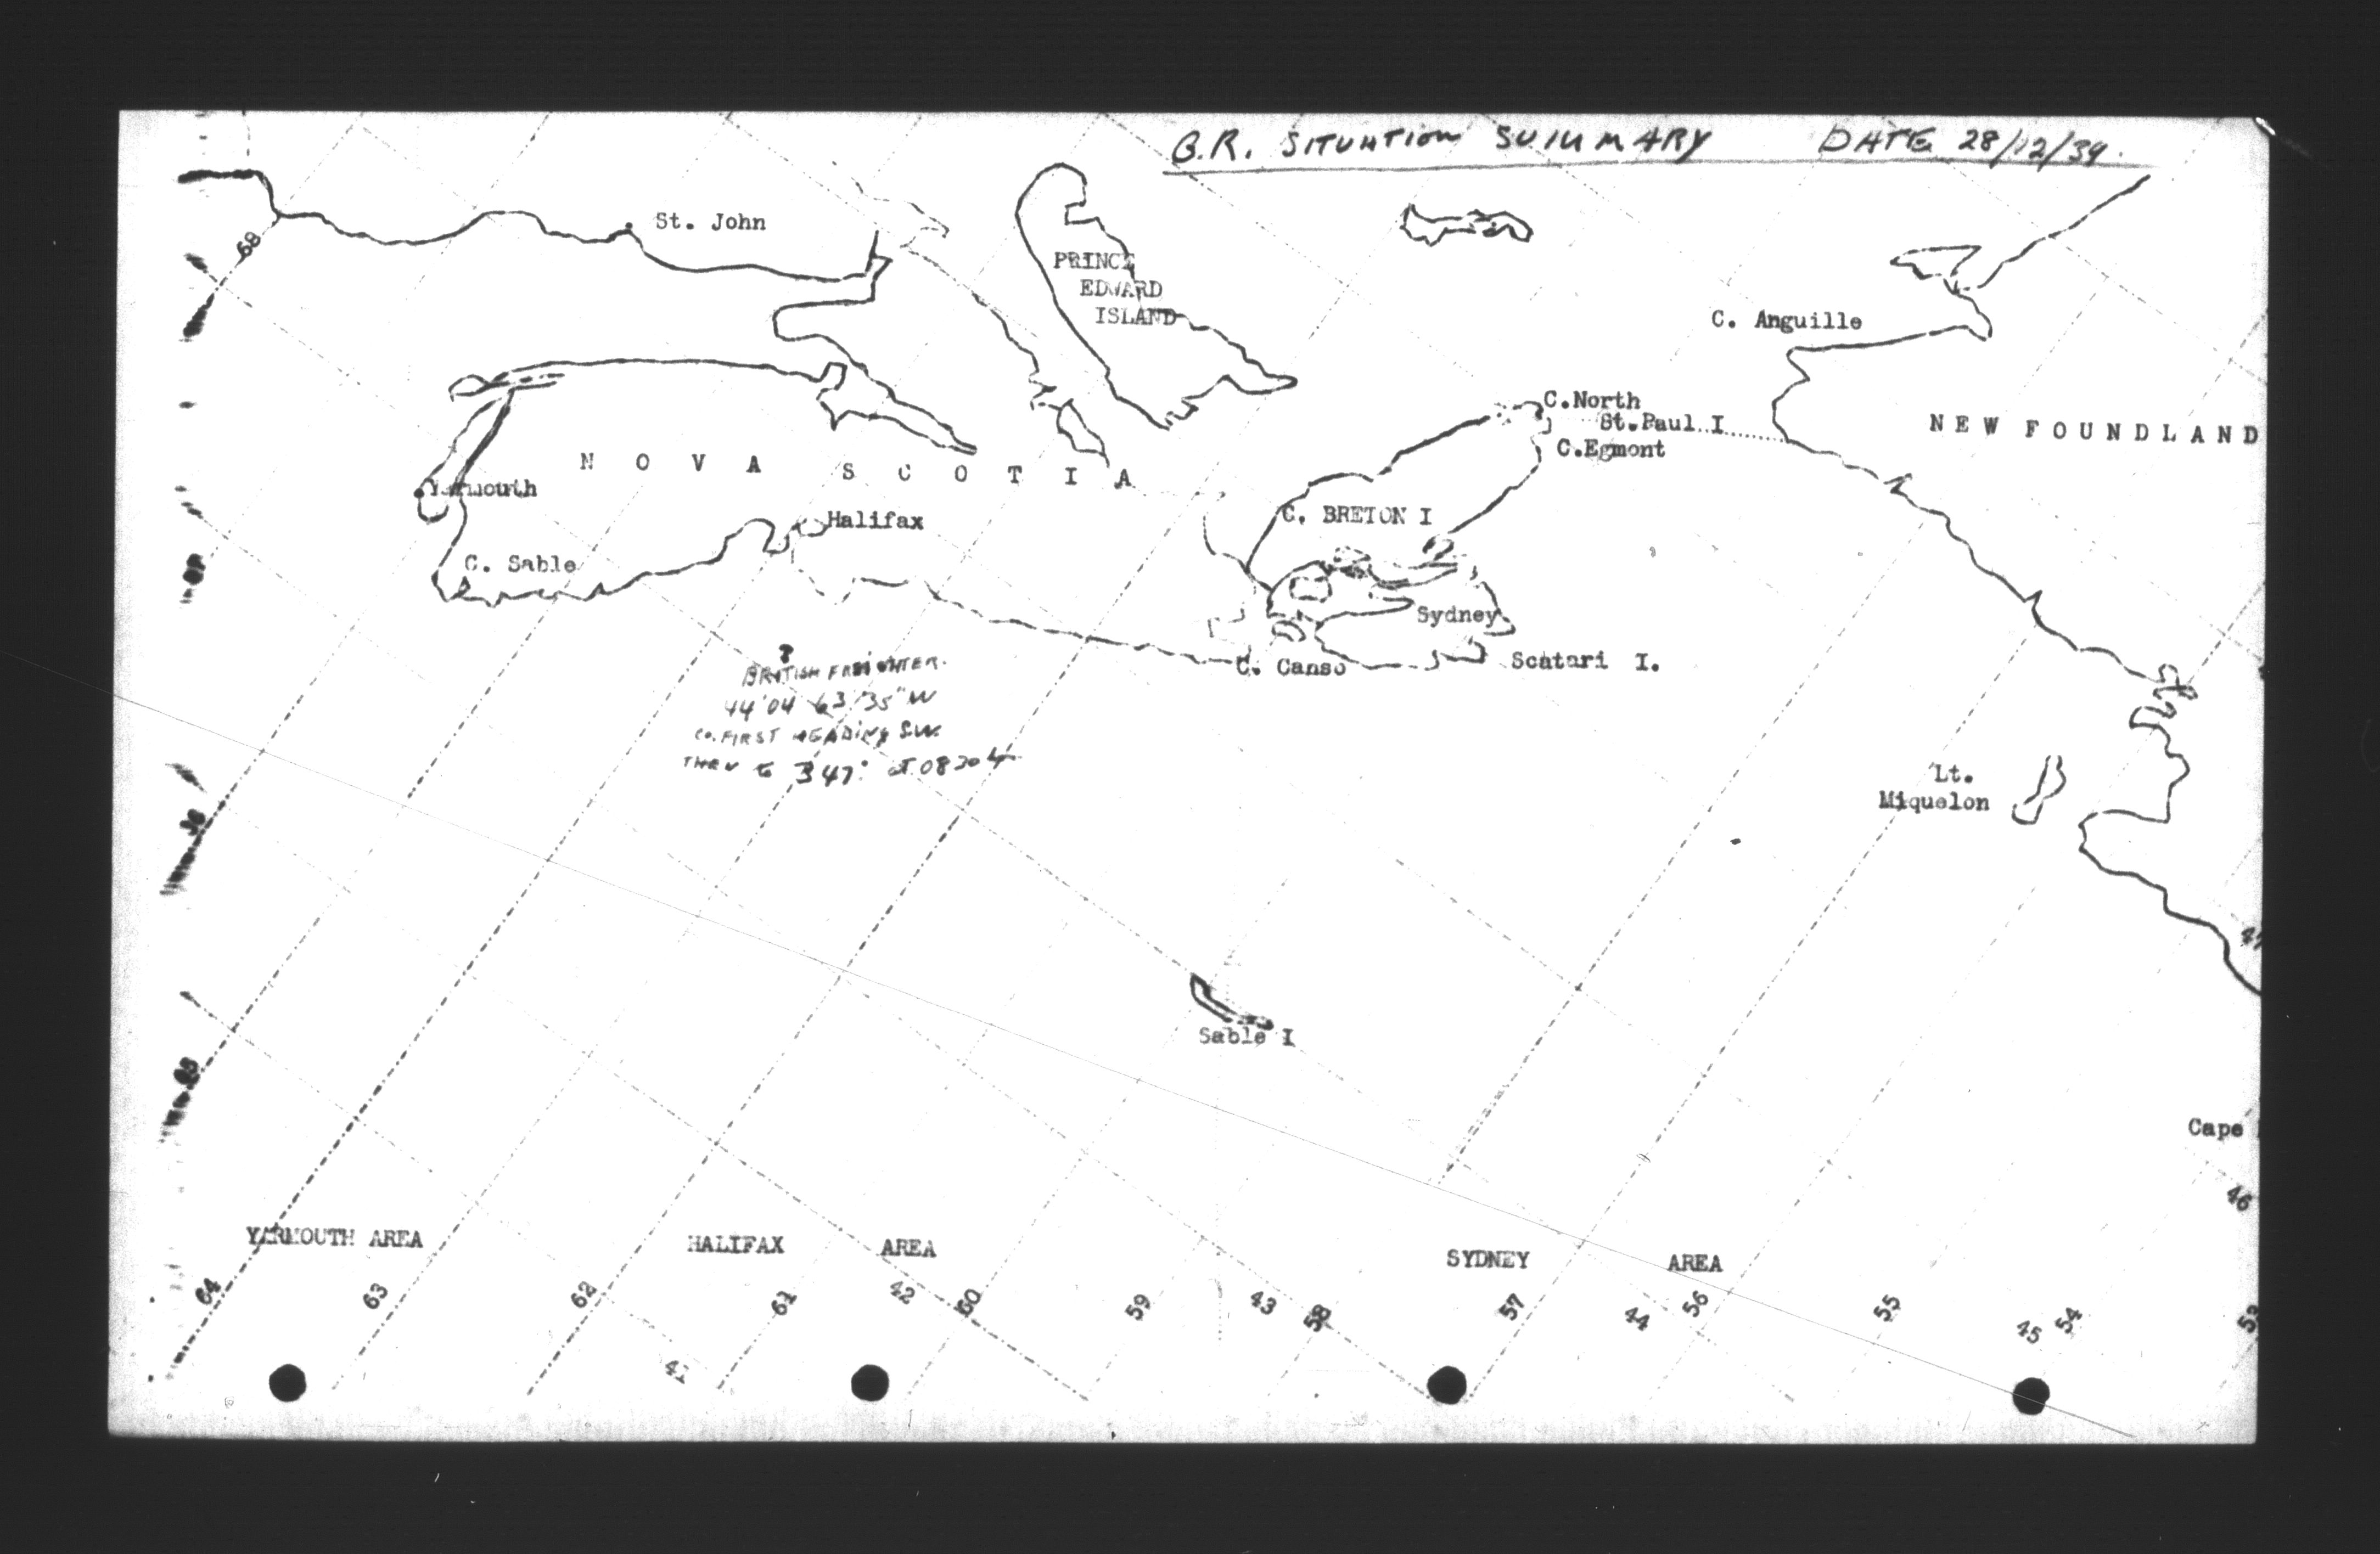 B.R. SITUATION SUMMARY DATE 28/12/39.
68
St. John
PRINCE
EDWARD
ISLAND
C. Anguille
C.North
St.Paul I
C.Egmont
NEW FOUNDLAND
NOVA SCOTIA
Yarmouth
Halifax
C. BRETON I
C. Sable
Sydney
C. Canso
Scatari I.
?
BRITISH FREIGHTER.
44'04 63'35"W
CO. FIRST HEADING S.W.
THEN to 347° at 0830
Lt.
Miquelon
Sable I
Cape
46
YARMOUTH AREA
HALIFAX AREA
SYDNEY AREA
64
63
62
61
42
60
59
43
58
57
44
56
55
45
54
41